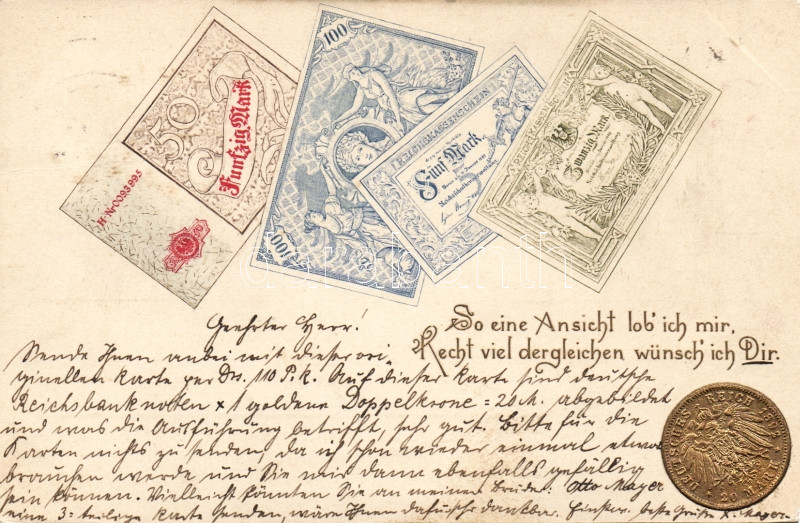 50
Funfzig Mark
H·No0093995
100
100
REICHSKASSENSCHEIN
Fünf Mark
Zwanzig Mark
So eine Ansicht lob' ich mir,
Recht viel dergleichen wünsch' ich Dir.
Geehrter Herr!
Sende Ihnen anbei mit dieser ori-
ginellen Karte per Drs. 110 P.k. Auf dieser Karte sind deutsche
Reichsbanknoten x 1 goldene Doppelkrone = 20 M. abgebildet
und was die Ausführung betrifft, sehr gut. Bitte für die
Karten nichts zu senden, da ich schon wieder einmal etwas
brauchen werde und Sie mir dann ebenfalls gefällig
sein können. Vielleicht könnten Sie an meinen Bruder Otto Mayer
eine 3-teilige Karte senden, wäre Ihnen dafür sehr dankbar. beste Grüße X. Mayer
DEUTSCHES REICH
20 M
darabanth